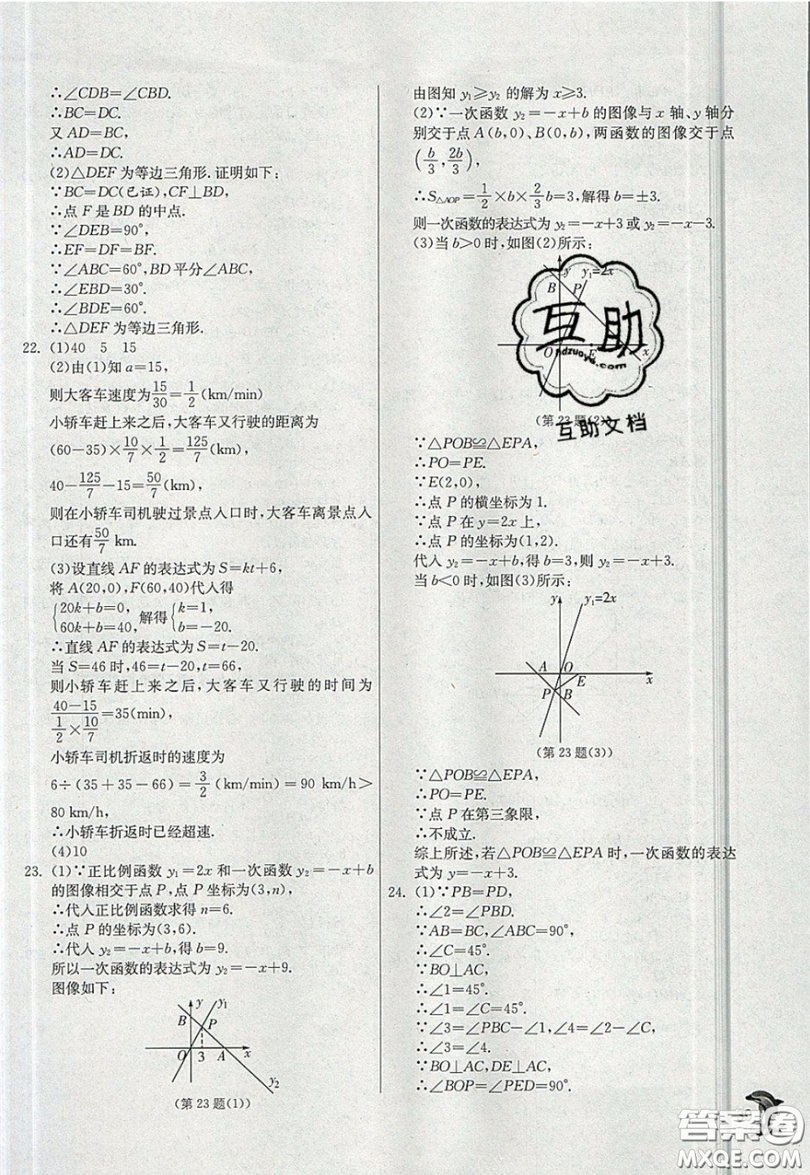 ∴∠CDB=∠CBD.
∴BC=DC.
又 AD=BC,
∴AD=DC.
(2)△DEF 为等边三角形. 证明如下:
∵BC=DC(已证),CF⊥BD,
∴点 F 是 BD 的中点.
∵∠DEB=90°,
∴EF=DF=BF.
∵∠ABC=60°,BD 平分∠ABC,
∴∠EBD=30°.
∴∠BDE=60°.
∴△DEF 为等边三角形.
22. (1)40 5 15
(2)由(1)知 a=15,
则大客车速度为15/30=1/2(km/min)
小轿车赶上来之后,大客车又行驶的距离为
(60-35)×10/7×1/2=125/7(km),
40-125/7-15=50/7(km),
则在小轿车司机驶过景点入口时,大客车离景点入
口还有50/7 km.
(3)设直线 AF 的表达式为 S=kt+6,
将 A(20,0),F(60,40)代人得
{20k+b=0, 60k+b=40, 解得{k=1, b=-20.
∴直线 AF 的表达式为 S=t-20.
当 S=46 时,46=t-20,t=66,
则小轿车赶上来之后,大客车又行驶的时间为
(40-15)/(1/2×10/7)=35(min),
小轿车司机折返时的速度为
6÷(35+35-66)=3/2(km/min)=90 km/h>
80 km/h,
∴小轿车折返时已经超速.
(4)10
23. (1)∵正比例函数 y₁=2x 和一次函数 y₂=-x+b
的图像相交于点 P,点 P 坐标为(3,n),
∴代人正比例函数求得 n=6.
∴点 P 的坐标为(3,6).
∴代人 y₂=-x+b,得 b=9.
所以一次函数的表达式为 y₂=-x+9.
图像如下:
y y₁
B P
O 3 A x
y₂
(第 23 题(1))
由图知 y₁≥y₂ 的解为 x≥3.
(2)∵一次函数 y₂=-x+b 的图像与 x 轴、y 轴分
别交于点 A(b,0)、B(0,b),两函数的图像交于点
(b/3,2b/3),
∴S△AOP=1/2×b×2/3b=3,解得 b=±3.
则一次函数的表达式为 y₂=-x+3或 y₂=-x-3.
(3)当 b>0 时,如图(2)所示:
y y₁=2x
B P
O E x
(第 23 题(2))
互助
ndzuoye.com
互助文档
∵△POB≌△EPA,
∴PO=PE.
∵E(2,0),
∴点 P 的横坐标为 1.
∵点 P 在 y=2x 上,
∴点 P 的坐标为(1,2).
代人 y₂=-x+b,得 b=3,则 y₂=-x+3.
当 b<0 时,如图(3)所示:
y y₁=2x
A O
E x
P B
(第 23 题(3))
∵△POB≌△EPA,
∴PO=PE.
∵点 P 在第三象限,
∴不成立.
综上所述,若△POB≌△EPA 时,一次函数的表达
式为 y=-x+3.
24. (1)∵PB=PD,
∴∠2=∠PBD.
∵AB=BC,∠ABC=90°,
∴∠C=45°.
∵BO⊥AC,
∴∠1=45°.
∴∠1=∠C=45°.
∵∠3=∠PBC-∠1,∠4=∠2-∠C,
∴∠3=∠4.
∵BO⊥AC,DE⊥AC,
∴∠BOP=∠PED=90°.
答案圈
MXQE.COM